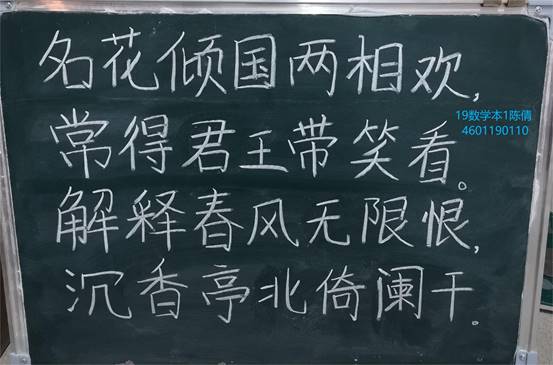 名花倾国两相欢,
常得君王带笑看。
解释春风无限恨,
沉香亭北倚阑干。
19数学本1陈倩
4601190110